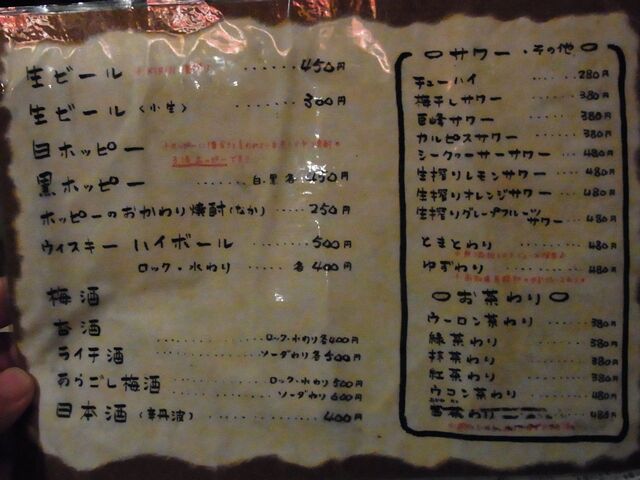 生ビール ・・・・・・450円
生ビール〈小生〉 ・・・・・300円
白ホッピー
黒ホッピー ・・・・・ 白・黒各 450円
ホッピーのおかわり焼酎(なか) ・・・・ 250円
ウィスキー ハイボール ・・・・・ 500円
ロック・水わり ・・・・ 各400円
梅酒
杏酒 ・・・・・・ ロック・水わり各400円
ライチ酒 ・・・・・・ ソーダわり各500円
あらごし梅酒 ・・・・・ ロック・水わり500円
ソーダわり600円
日本酒 (辛丹波) ・・・・・・ 400円
サワー・その他
チューハイ ・・・・・ 280円
梅干しサワー ・・・・ 380円
巨峰サワー ・・・・ 380円
カルピスサワー ・・・・ 380円
シークヮーサーサワー ・・・・ 480円
生搾りレモンサワー ・・・・ 480円
生搾りオレンジサワー ・・・・ 480円
生搾りグレープフルーツ
サワー ・・ 480円
とまとわり ・・・・・ 480円
ゆずわり ・・・・・ 480円
お茶わり
ウーロン茶わり ・・・・ 380円
緑茶わり ・・・・・ 380円
紅茶わり ・・・・・ 380円
ウコン茶わり ・・・・ 480円
480円